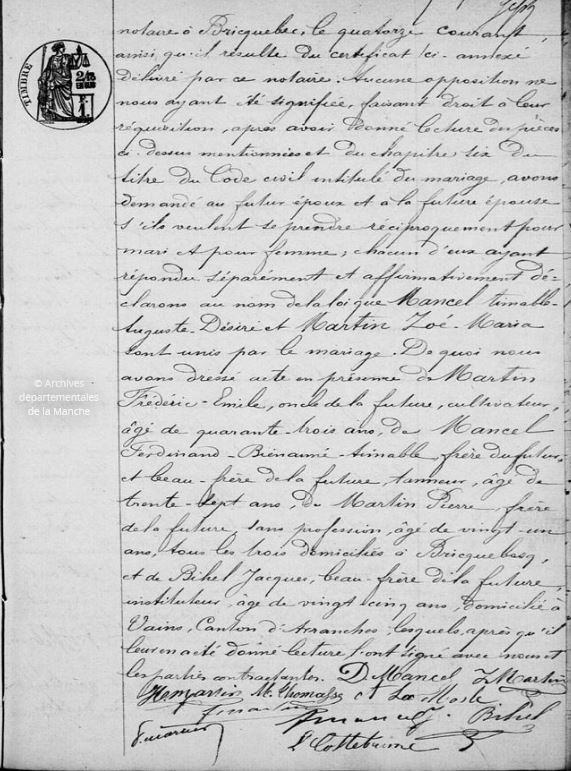 notaire à Bricquebec, le quatorze courant,
ainsi qu'il résulte du certificat ci-annexé
délivré par ce notaire. Aucune opposition ne
nous ayant été signifiée, faisant droit à leur
réquisition, après avoir donné lecture des pièces
ci-dessus mentionnées et du chapitre six du
titre du Code civil intitulé du mariage, avons
demandé au futur époux et à la future épouse
s'ils veulent se prendre réciproquement pour
mari et pour femme; chacun d'eux ayant
répondu séparément et affirmativement dé-
clarons au nom de la loi que Mancel Aimable-
Auguste-Désiré et Martin Zoé-Maria
sont unis par le mariage. De quoi nous
avons dressé acte en présence de Martin
Frédéric-Emile, oncle de la future, cultivateur,
âgé de quarante-trois ans, de Mancel
Ferdinand-Bienaimé-Aimable, frère du futur,
et beau-frère de la future, tanneur, âgé de
trente-sept ans, de Martin Pierre, frère
de la future, sans profession, âgé de vingt-un
ans, tous les trois domiciliés à Bricquebec,
et de Bihel Jacques, beau-frère de la future,
instituteur, âgé de vingt cinq ans, domicilié à
Vains, Canton d'Avranches; lesquels, après qu'il
leur en a été donné lecture, ont signé avec nous et
les parties contractantes. D Mancel Z Martin
Bihel
TIMBRE
© Archives
départementales
de la Manche